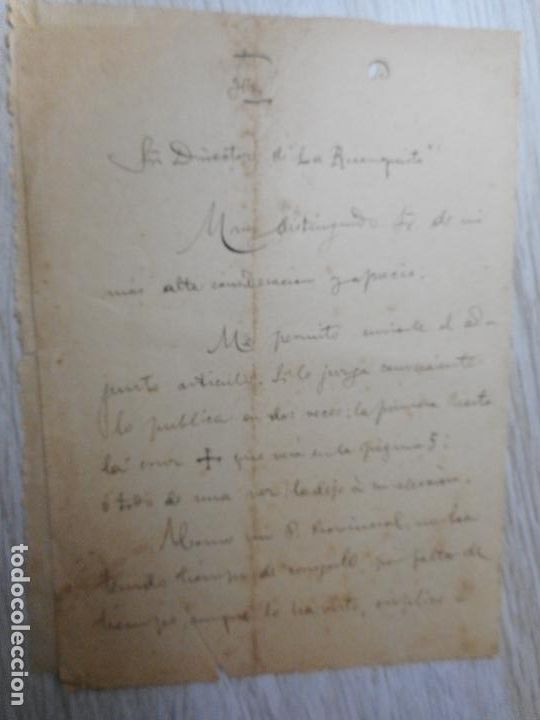 Sr. Director de "La Reconquista"
Muy distinguido Sr. de mi
más alta consideracion y aprecio.
Me permito enviarle el ad-
junto articulo. Si lo juzga conveniente
lo publica en dos veces: la primera hasta
la cruz + que verá en la página 5:
ó todo de una vez: lo dejo á su elección.
Como mi P. Provincial, no ha
tenido tiempo de por falta de
tiempo, aunque lo ha visto, suplico á
todocoleccion.net